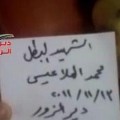 الشهيد البطل
محمد الملا عيسى
٢٠١١/١١/١٣
دير الزور